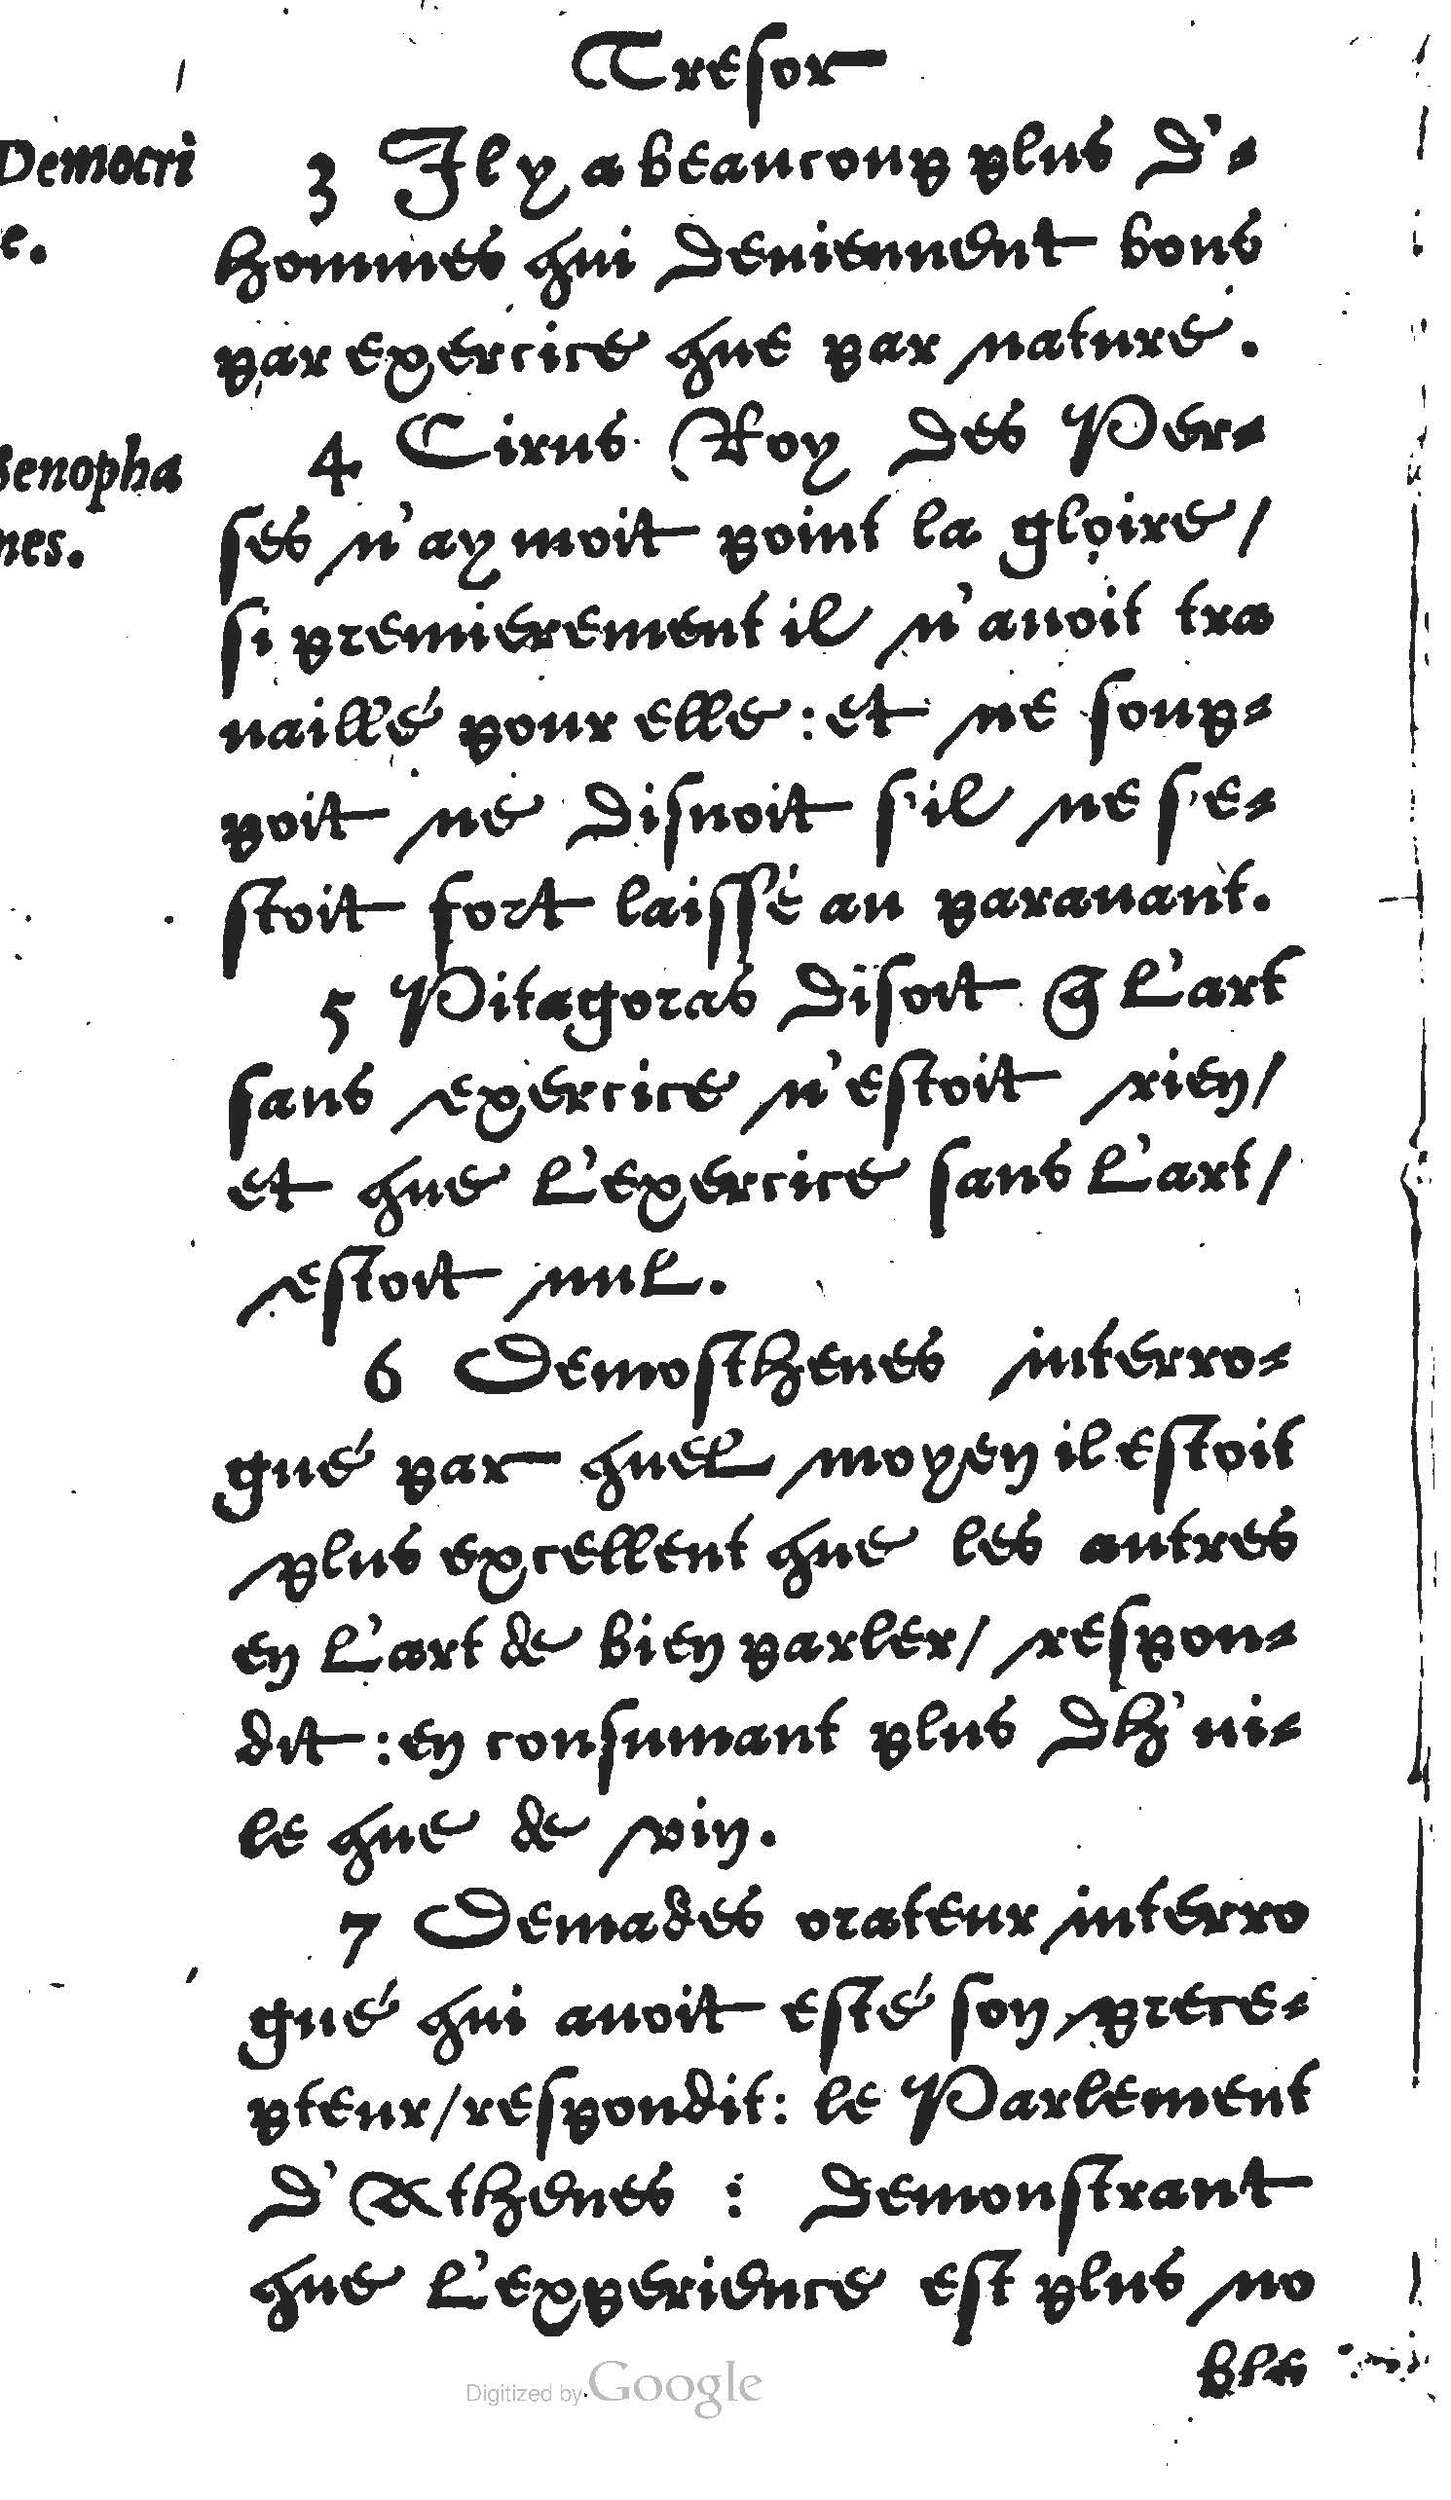 Tresor
Democri
e.
3 Il y a beaucoup plus d'-
hommes qui deuiennent bons
par exercice que par nature.
Senopha
nes.
4 Cirus Roy des Per-
ses n'aymoit point la gloire/
si premierement il n'auoit tra
uaillé pour elle : et ne soup-
poit ne disnoit s'il ne s'e-
stoit fort laissé au parauant.
5 Pitagoras disoit q̃ l'art
sans exercice n'estoit rien/
et que l'exercice sans l'art/
estoit nul.
6 Demosthenes interro-
gué par quel moyen il estoit
plus excellent que les autres
en l'art de bien parler/ respon-
dit : en consumant plus dh'ui-
le que de vin.
7 Demades orateur interro
gué qui auoit esté son prece-
pteur/ respondit : le Parlement
d'Athenes : demonstrant
que l'experience est plus no
ble
Digitized by Google